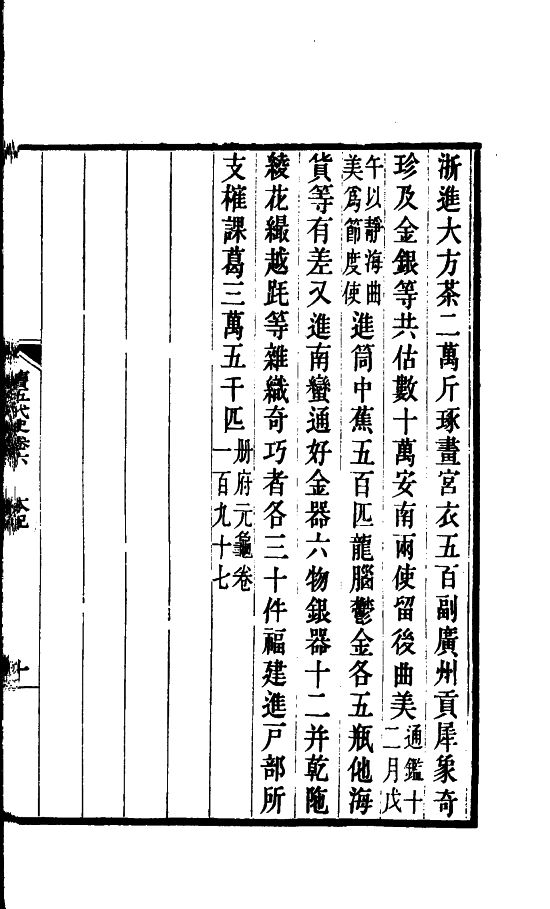 浙進大方茶二萬斤琢畫宮衣五百副廣州貢犀象奇
珍及金銀等共估數十萬安南兩使留後曲美通鑑十
二月戊
午以靜海曲
美爲節度使進筒中蕉五百匹龍腦鬱金各五瓶他海
貨等有差又進南蠻通好金器六物銀器十二并乾陁
綾花纈越㲯等雜織奇巧者各三十件福建進戸部所
支榷課葛三萬五千匹册府元龜卷
一百九十七
五代史卷六
本紀